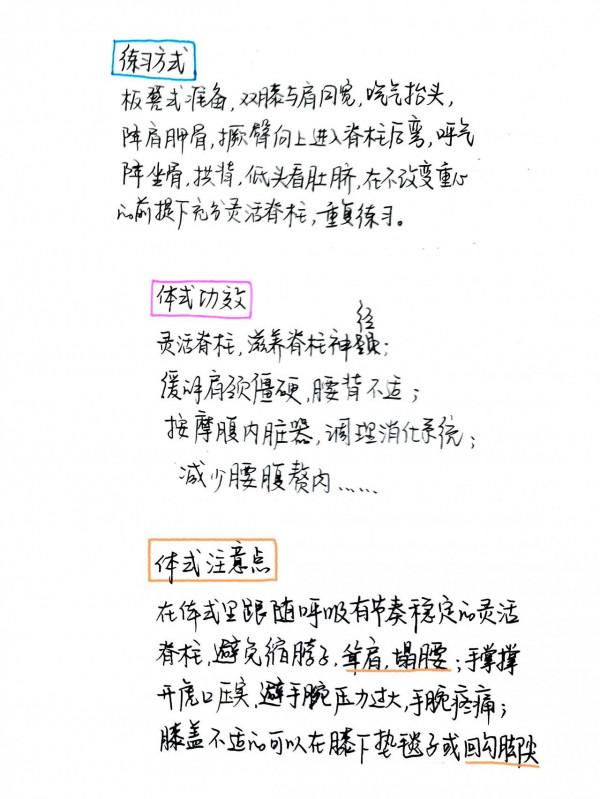 练习方式
板凳式准备,双膝与肩同宽,吸气抬头,
降肩胛骨,撅臀向上进入脊柱后弯,呼气
降坐骨,拱背,低头看肚脐,在不改变重心
的前提下充分灵活脊柱,重复练习。
体式功效
灵活脊柱,滋养脊柱神经;
缓解肩颈僵硬,腰背不适;
按摩腹内脏器,调理消化系统;
减少腰腹赘肉……
体式注意点
在体式里跟随呼吸有节奏稳定的灵活
脊柱,避免缩脖子,耸肩,塌腰;手掌撑
开虎口压实,避手腕压力过大,手腕疼痛;
膝盖不适的可以在膝下垫毯子或回勾脚尖